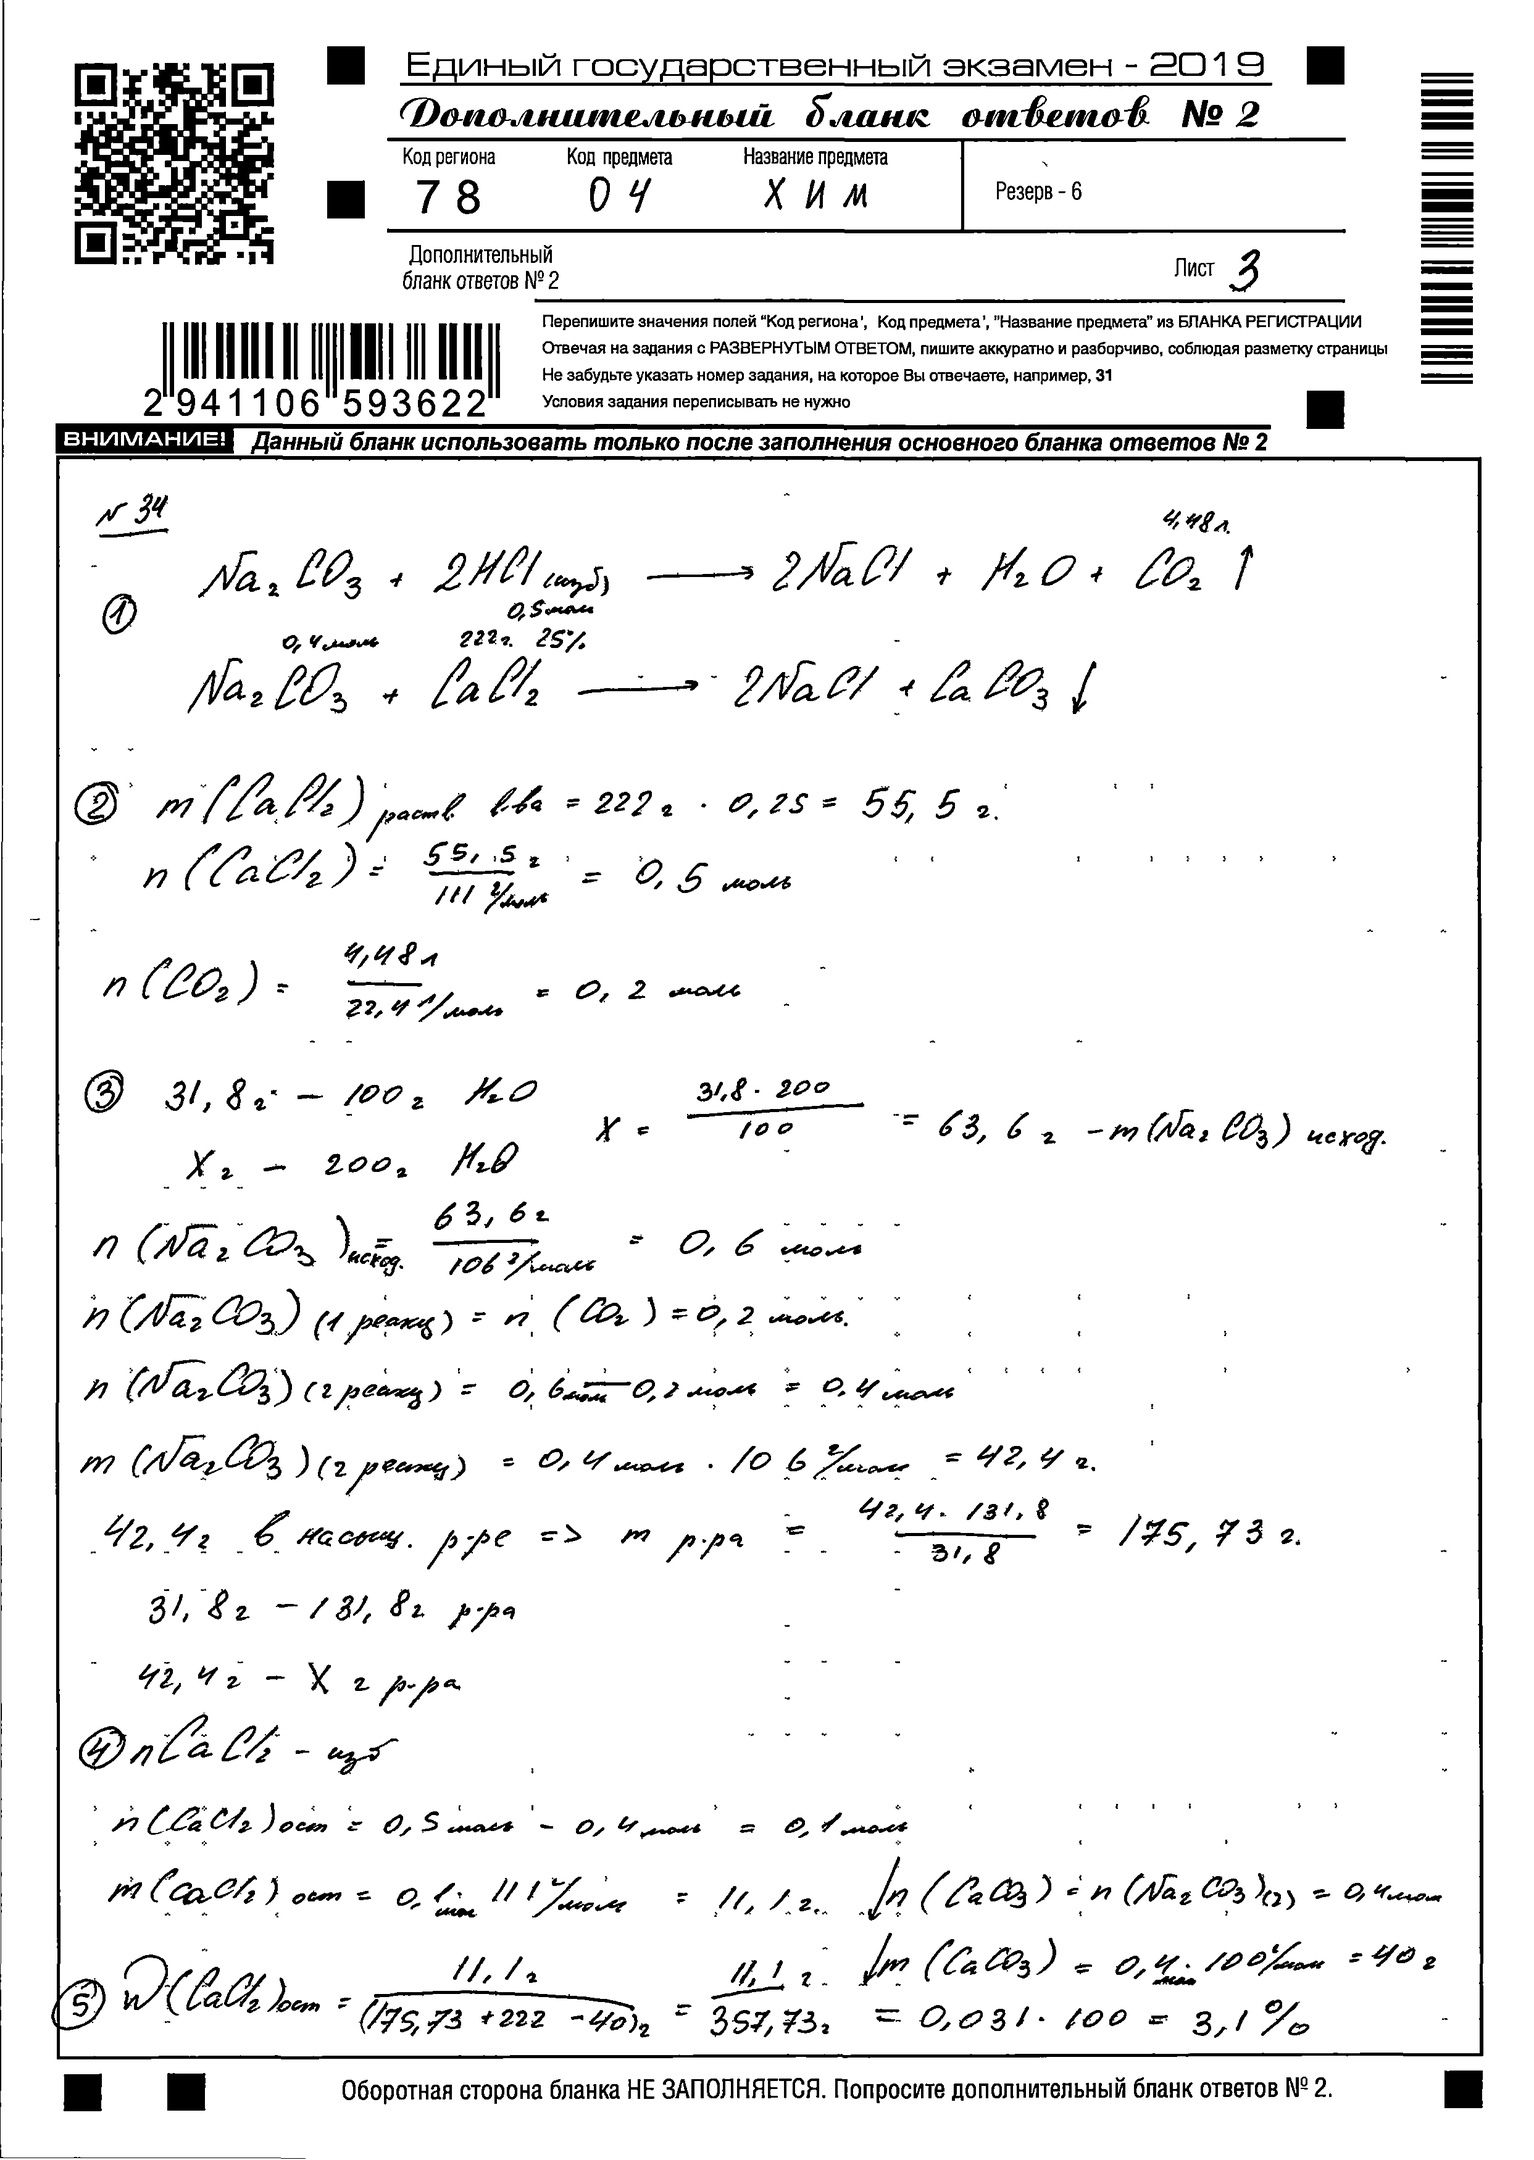 Единый государственный экзамен - 2019
Дополнительный бланк ответов № 2
Код региона Код предмета Название предмета
78 04 ХИМ
Резерв - 6
Дополнительный
бланк ответов № 2
Лист 3
Перепишите значения полей "Код региона", Код предмета", "Название предмета" из БЛАНКА РЕГИСТРАЦИИ
Отвечая на задания с РАЗВЕРНУТЫМ ОТВЕТОМ, пишите аккуратно и разборчиво, соблюдая разметку страницы
Не забудьте указать номер задания, на которое Вы отвечаете, например, 31
Условия задания переписывать не нужно
2 941106 593622
ВНИМАНИЕ! Данный бланк использовать только после заполнения основного бланка ответов № 2
N 34
4,48 л.
① Na₂CO₃ + 2HCl (изб) → 2NaCl + H₂O + CO₂ ↑
0,5 моль
0,4 моль 222 г. 25%
Na₂CO₃ + CaCl₂ → 2NaCl + CaCO₃ ↓
② m(CaCl₂) раств. в-ва = 222 г · 0,25 = 55,5 г.
n(CaCl₂) = 55,5 г / 111 г/моль = 0,5 моль
n(CO₂) = 4,48 л / 22,4 л/моль = 0,2 моль
③ 31,8 г - 100 г H₂O
X г - 200 г H₂O
X = 31,8 · 200 / 100 = 63,6 г - m(Na₂CO₃) исход.
n(Na₂CO₃) исход. = 63,6 г / 106 г/моль = 0,6 моль
n(Na₂CO₃) (1 реакц) = n(CO₂) = 0,2 моль.
n(Na₂CO₃) (2 реакц) = 0,6 моль - 0,2 моль = 0,4 моль
m(Na₂CO₃) (2 реакц) = 0,4 моль · 106 г/моль = 42,4 г.
42,4 г в насыщ. р-ре => m р-ра = 42,4 · 131,8 / 31,8 = 175,73 г.
31,8 г - 131,8 г р-ра
42,4 г - X г р-ра
④ nCaCl₂ - изб
n(CaCl₂) ост = 0,5 моль - 0,4 моль = 0,1 моль
m(CaCl₂) ост = 0,1 моль · 111 г/моль = 11,1 г. ↓n(CaCO₃) = n(Na₂CO₃)(2) = 0,4 моль
↓m(CaCO₃) = 0,4 моль · 100 г/моль = 40 г
⑤ W(CaCl₂) ост = 11,1 г / (175,73 + 222 - 40) г = 11,1 г. / 357,73 г = 0,031 · 100 = 3,1%
Оборотная сторона бланка НЕ ЗАПОЛНЯЕТСЯ. Попросите дополнительный бланк ответов № 2.